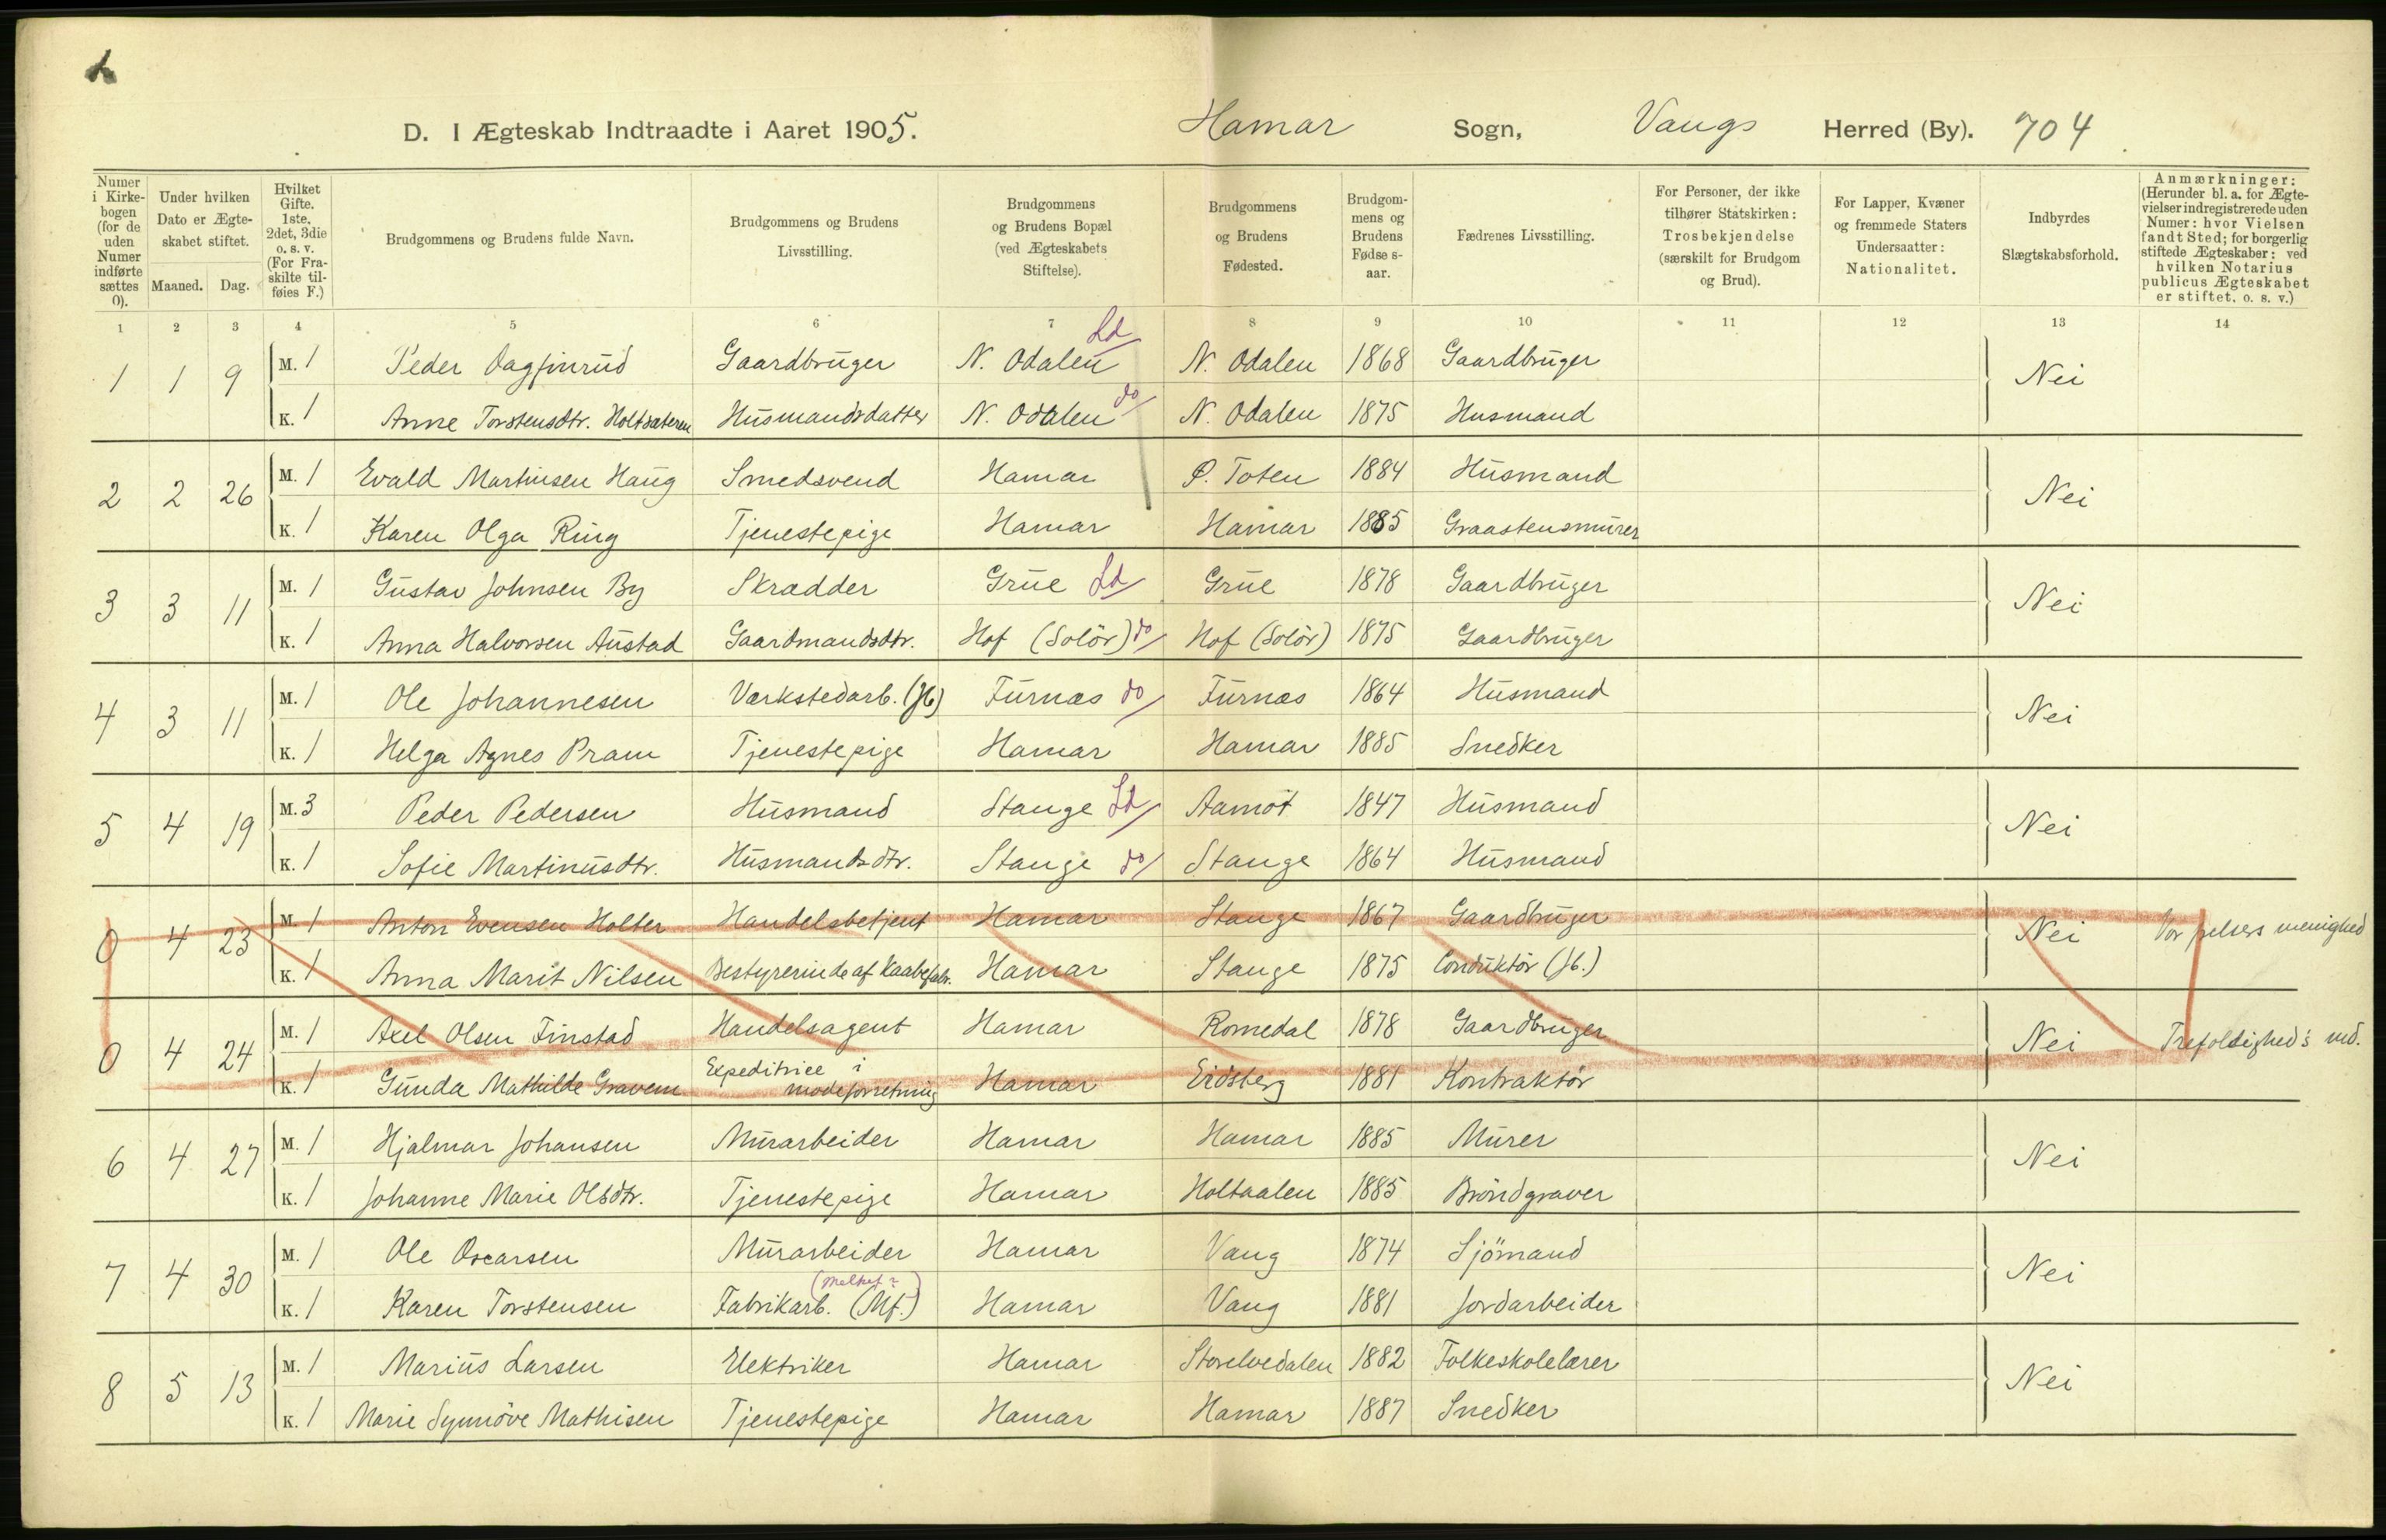 D. I Ægteskab Indtraadte i Aaret 1905. Hamar Sogn, Vangs Herred (By). 704
Numer i Kirkebogen (for de uden Numer indførte sættes 0).
Under hvilken Dato er Ægteskabet stiftet.
Maaned. Dag.
Hvilket Gifte. 1ste, 2det, 3die o. s. v. (For Fraskilte tilføies F.)
Brudgommens og Brudens fulde Navn.
Brudgommens og Brudens Livsstilling.
Brudgommens og Brudens Bopæl (ved Ægteskabets Stiftelse).
Brudgommens og Brudens Fødested.
Brudgommens og Brudens Fødselsaar.
Fædrenes Livsstilling.
For Personer, der ikke tilhører Statskirken: Trosbekjendelse (særskilt for Brudgom og Brud).
For Lapper, Kvæner og fremmede Staters Undersaatter: Nationalitet.
Indbyrdes Slægtskabsforhold.
Anmærkninger: (Herunder bl. a. for Ægtevielser indregistrerede uden Numer: hvor Vielsen fandt Sted; for borgerlig stiftede Ægteskaber: ved hvilken Notarius publicus Ægteskabet er stiftet, o. s. v.)
1 2 3 4 5 6 7 8 9 10 11 12 13 14
1 1 9 M. 1 Peder Dagfinrud Gaardbruger N. Odalen Ld N. Odalen 1868 Gaardbruger Nei
K. 1 Anne Torstensdtr. Holtsæteren Husmandsdatter N. Odalen do N. Odalen 1875 Husmand
2 2 26 M. 1 Evald Martinsen Haug Smedsvend Hamar Ø. Toten 1884 Husmand Nei
K. 1 Karen Olga Ring Tjenestepige Hamar Hamar 1885 Graastensmurer
3 3 11 M. 1 Gustav Johnsen By Skrædder Grue Ld Grue 1878 Gaardbruger Nei
K. 1 Anna Halvorsen Austad Gaardmandsdtr. Hof (Solör) do Hof (Solör) 1875 Gaardbruger
4 3 11 M. 1 Ole Johannesen Værkstedarb. (Jb) Furnæs do Furnæs 1864 Husmand Nei
K. 1 Helga Agnes Pram Tjenestepige Hamar Hamar 1885 Snedker
5 4 19 M. 3 Peder Pedersen Husmand Stange Ld Aamot 1847 Husmand Nei
K. 1 Sofie Martinusdtr. Husmandsdtr. Stange do Stange 1864 Husmand
0 4 23 M. 1 Anton Evensen Holter Handelsbetjent Hamar Stange 1867 Gaardbruger Nei Vor frelsers menighed
K. 1 Anna Marit Nilsen Bestyrerinde af Kaabefabr. Hamar Stange 1875 Conduktör (Jb.)
0 4 24 M. 1 Axel Olsen Finstad Handelsagent Hamar Romedal 1878 Gaardbruger Nei Trefoldighed's md.
K. 1 Gunda Mathilde Gravem Expeditrice i modeforretning Hamar Eidsberg 1881 Kontraktör
6 4 27 M. 1 Hjalmar Johansen Murarbeider Hamar Hamar 1885 Murer Nei
K. 1 Johanne Marie Olsdtr. Tjenestepige Hamar Holtaalen 1885 Bröndgraver
7 4 30 M. 1 Ole Oscarsen Murarbeider Hamar Vang 1874 Sjömand Nei
K. 1 Karen Torstensen Fabrikarb. (Mf.) Hamar Vang 1881 Jordarbeider
8 5 13 M. 1 Marius Larsen Elektriker Hamar Storelvedalen 1882 Folkeskolelærer Nei
K. 1 Marie Synnöve Mathisen Tjenestepige Hamar Hamar 1887 Snedker